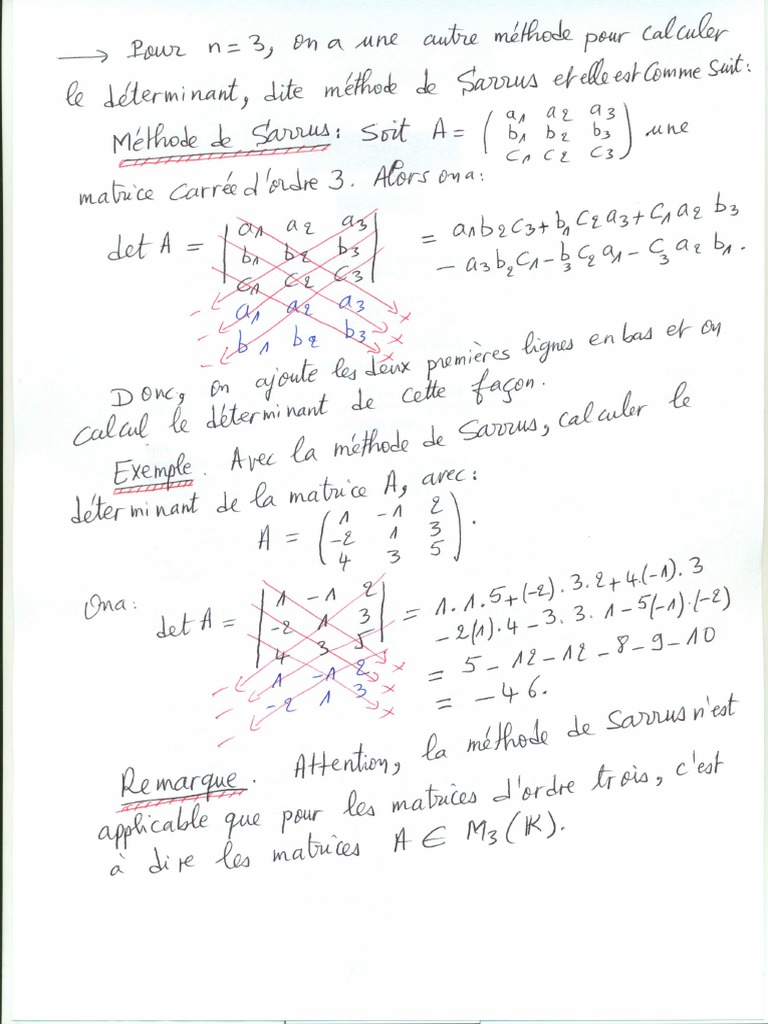 → Pour n = 3, on a une autre méthode pour calculer
le déterminant, dite méthode de Sarrus et elle est comme suit:
Méthode de Sarrus: Soit A = ( a1 a2 a3 ) une
b1 b2 b3
c1 c2 c3
matrice carrée d'ordre 3. Alors on a:
det A = | a1 a2 a3 | = a1b2c3 + b1c2a3 + c1a2b3
b1 b2 b3
- a3b2c1 - b3c2a1 - c3a2b1.
c1 c2 c3
- a1 a2 a3 x
- b1 b2 b3 x
-
Donc, on ajoute les deux premières lignes en bas et on
calcul le déterminant de cette façon.
Exemple. Avec la méthode de Sarrus, calculer le
déterminant de la matrice A, avec:
A = ( 1 -1 2 ).
-2 1 3
4 3 5
On a: det A = | 1 -1 2 | = 1.1.5 + (-2).3.2 + 4.(-1).3
-2 1 3
- 2(1).4 - 3.3.1 - 5(-1).(-2)
4 3 5
= 5 - 12 - 12 - 8 - 9 - 10
- 1 -1 2 x
= -46.
- -2 1 3 x
-
Remarque. Attention, la méthode de Sarrus n'est
applicable que pour les matrices d'ordre trois, c'est
à dire les matrices A ∈ M3(K).